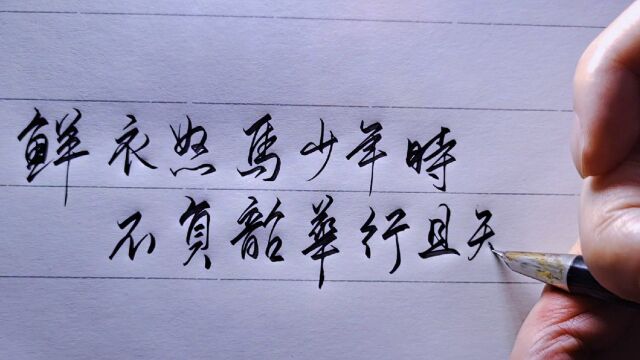 鲜衣怒馬少年時
不負韶華行且